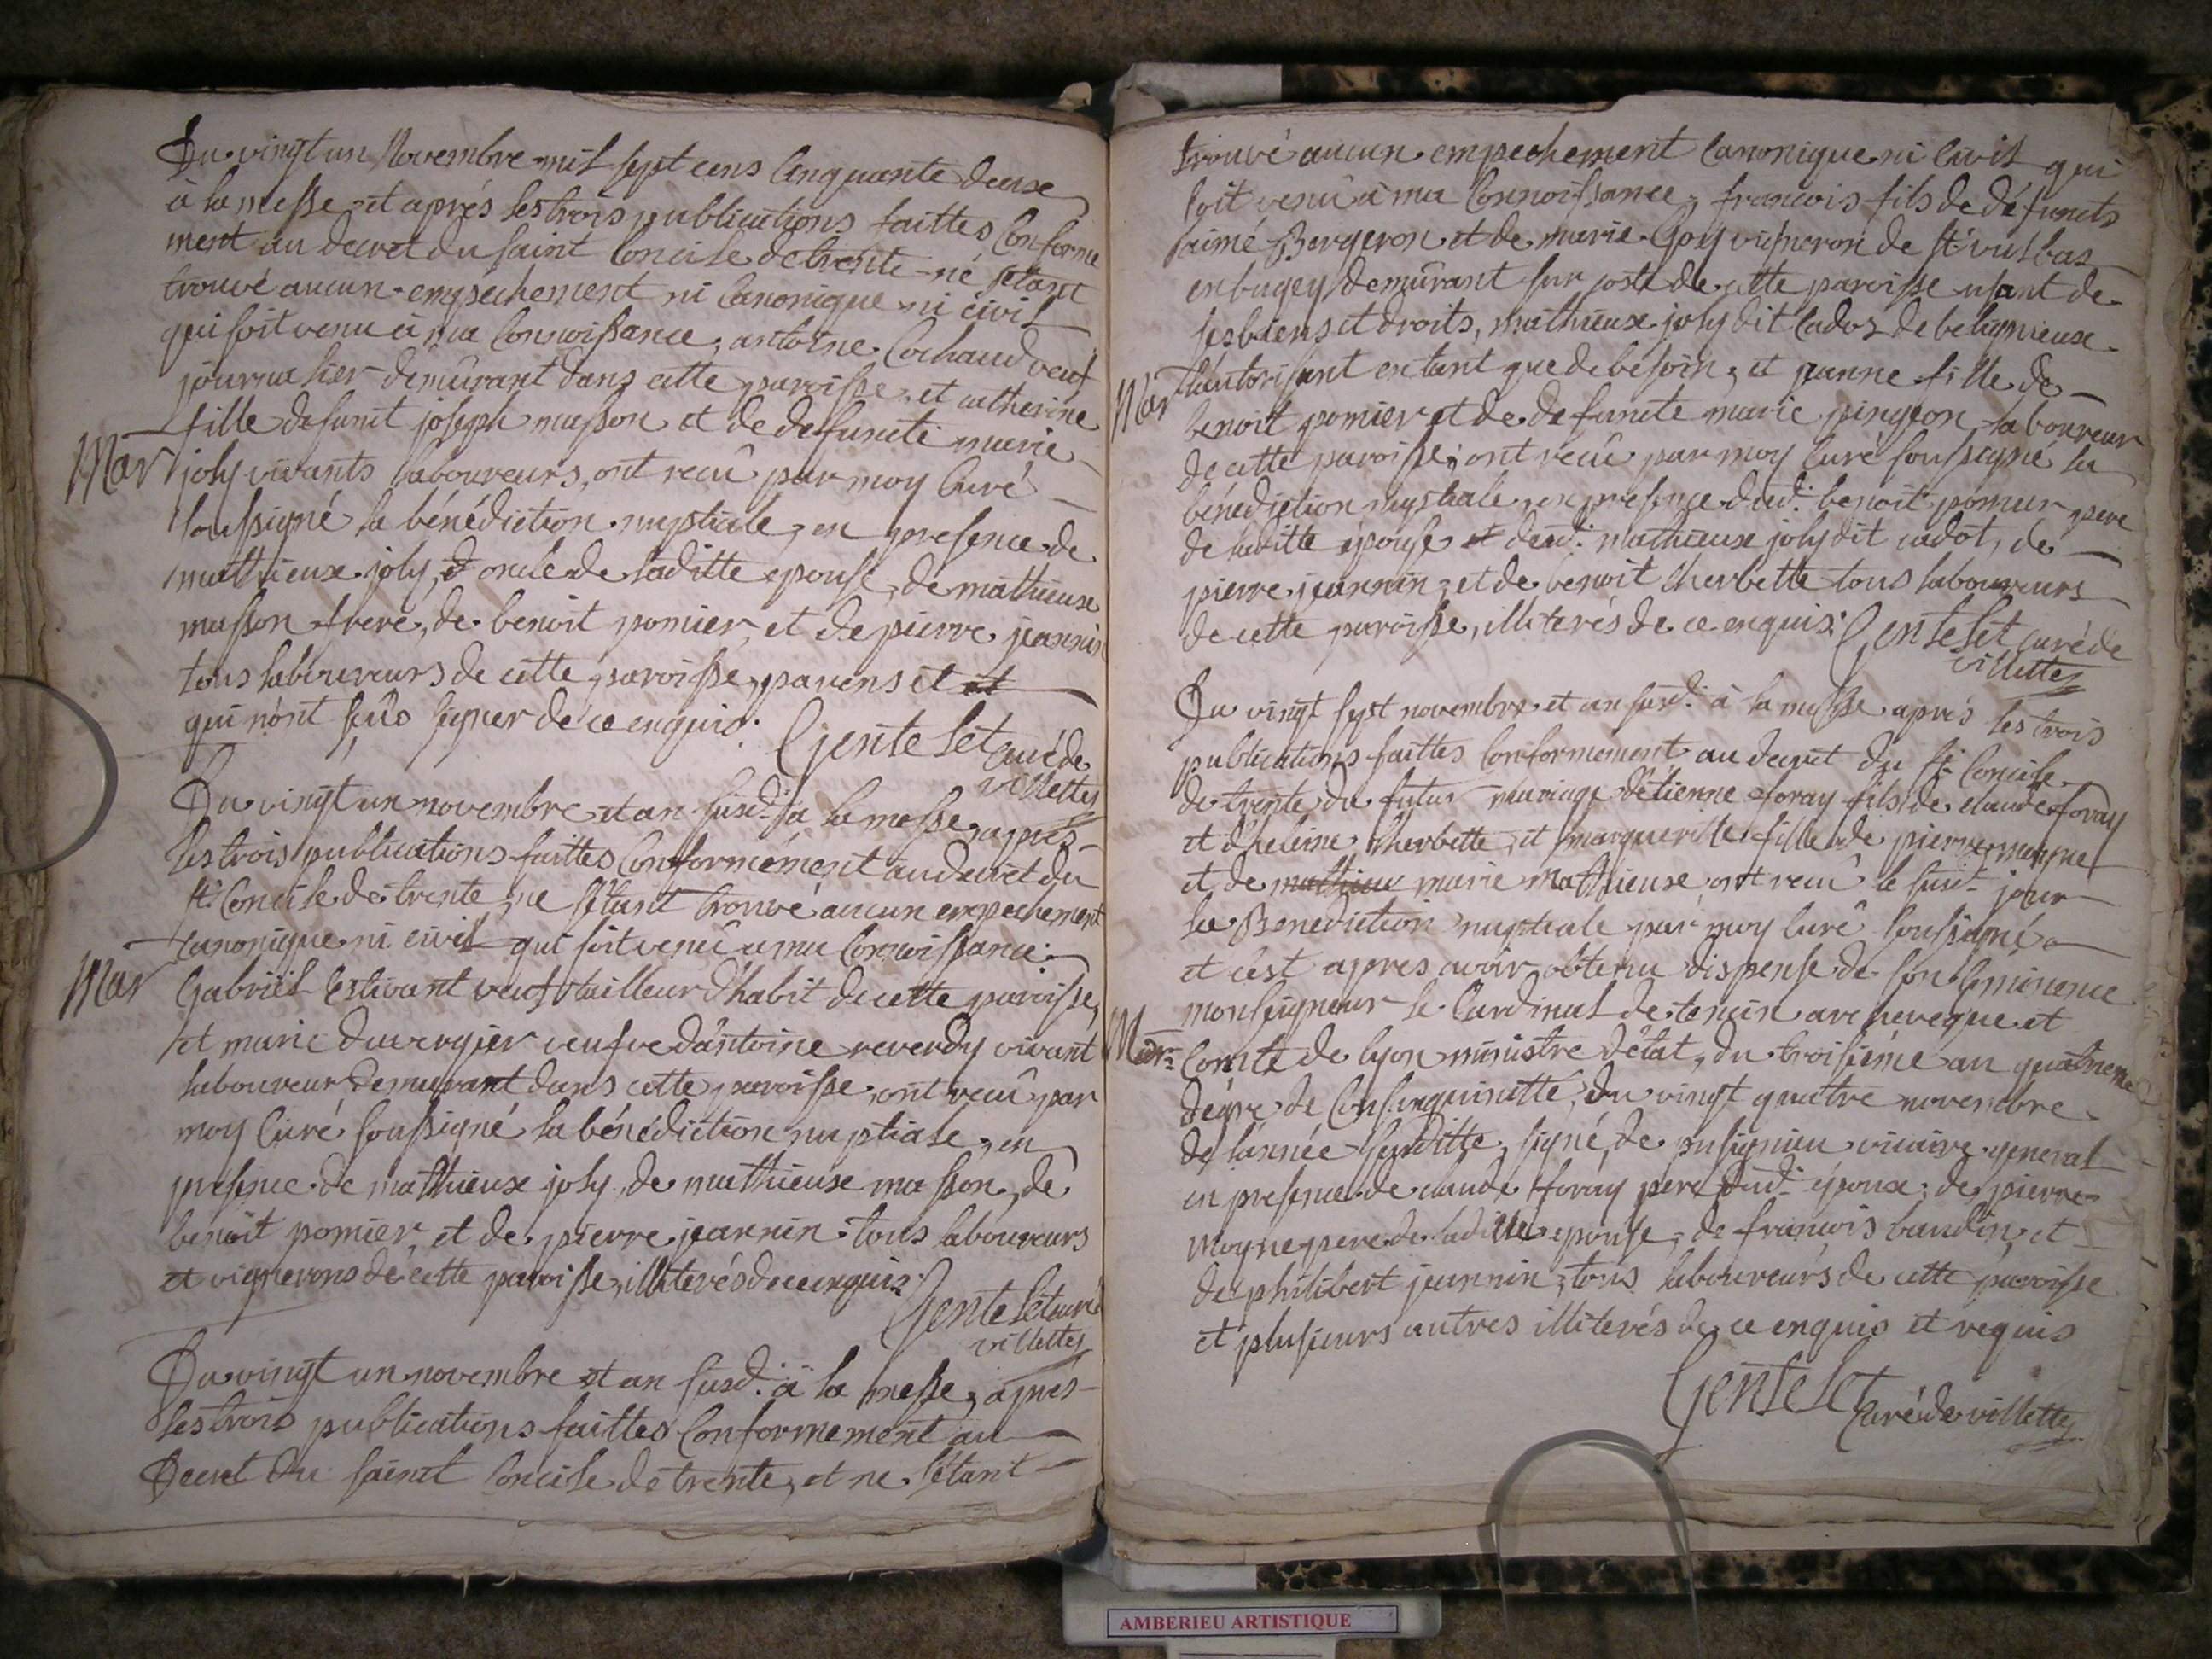 Du vingt un Novembre mil sept cens Cinquante deux
à la messe et aprés les trois publications faittes Conforme
ment au decret du saint Concile de trente né sétant
trouvé aucun empechement ni Canonique ni civil
qui soit venu à ma Connoissance, antoine Cochaud veuf
journalier demûrant dans cette paroisse, et catherine
fille defunt joseph masson et de defuncte marie
Mar joly vivants laboureurs, ont recû par moy Curé
soussigné la bénédiction nuptiale, en presence de
mathieux joly, oncle de laditte epouse, de mathieux
masson frere, de benoit pomier, et de pierre jeannin
tous laboureurs de cette paroisse, parens et et
qui nónt sçûs signer de ce enquis. Gentelet curé de
villettes
Du vingt un novembre et an susd. à la messe, aprés
les trois publications faittes Conformément au decret du
st Concile de trente, ne sétant trouvé aucun empechement
canonique ni civil qui soit venû a ma Connoissance.
Mar Gabriel Estivant veuf tailleur d'habit de cette paroisse,
et marie duvergier veufve d'antoine reverdy vivant
laboureur demurant dans cette paroisse, ont recû par
moy Curé soussigné la bénédiction nuptiale, en
presence de mathieux joly, de mathieux masson, de
benoit pomier, et de pierre jeannin tous laboureurs
et vignerons de cette paroisse, illiterés de ce enquis. Gentelet curé
villettes
Du vingt un novembre et an susd. à la messe, apres
les trois publications faittes Conformement au
Decret Du sainct Concile de trente, et ne sétant
trouvé aucun empechement Canonique ni Civil qui
soit venû à ma Connoissance, francois fils de défuncts
aimé Bergeron et de marie Goy vigneron de st vulbas
en bugey demûrant sur joste de cette paroisse usant de
ses biens et droits, mathieux joly dit Cadoz de belignieux
Mar l'autorisant en tant que de besoin, et jeanne fille de
benoit pomier et de defuncte marie pingeon laboureur
de cette paroisse, ont recû par moy Curé soussigné la
bénédiction nuptiale, en presence dud. benoit pomier pere
de laditte épouse et dud. mathieux joly dit cadot, de
pierre jeannin, et de benoit cherbette tous laboureurs
de cette paroisse, illiterés de ce enquis. Gentelet curé de
villettes
Du vingt sept novembre et an susd. à la messe aprés les trois
publications faittes Conformement au decret du st Concile
de trente du futur mariage d'étienne foray fils de claude foray
et d'heleine cherbette, et marguerite fille de pierre moyne
et de mathieu marie Mathieuse ont recû le susd. jour
la Benediction nuptiale par moy Curé soussigné
et c'est apres avoir obtenu dispense de son Eminence
monseigneur le Cardinal de tencin archeveque et
Mar. Comte de lyon ministre d'état, du troisiéme au quatrieme
degre de Consanguinitté, du vingt quatre novembre
de l'année susditte, signé, de pusignieu vicaire general
en presence de claude foray pere dud. époux, de pierre
moyne pere de laditte epouse, de francois baudin, et
de philibert jeannin, tous laboureurs de cette paroisse
et plusieurs autres illiterés de ce enquis et requis
Gentelet
Curé de villettes
AMBERIEU ARTISTIQUE